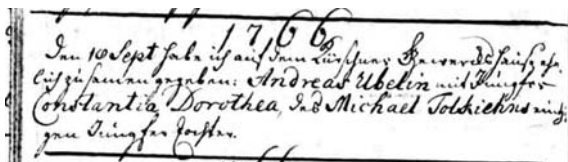 1766
Den 18 Sept habe ich auf dem Kürschner Gewercks Hause ehe-
lich zusamen gegeben: Andreas Ubelin mit Jungfer
Constantia Dorothea, des Michael Tolskiehns eintzi-
gen Jungfer Tochter.